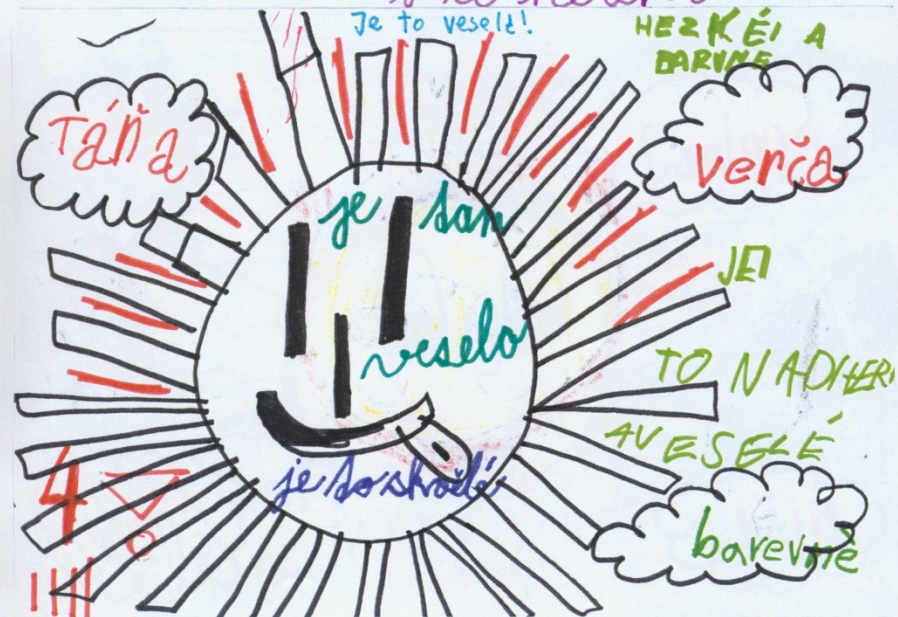 Je to veselé!
HEZKÉI A
BARVNE
Táňa
verča
je tam
veselo
JEI
TO NADHER
AVESELÉ
je to skvělé
barevné
4